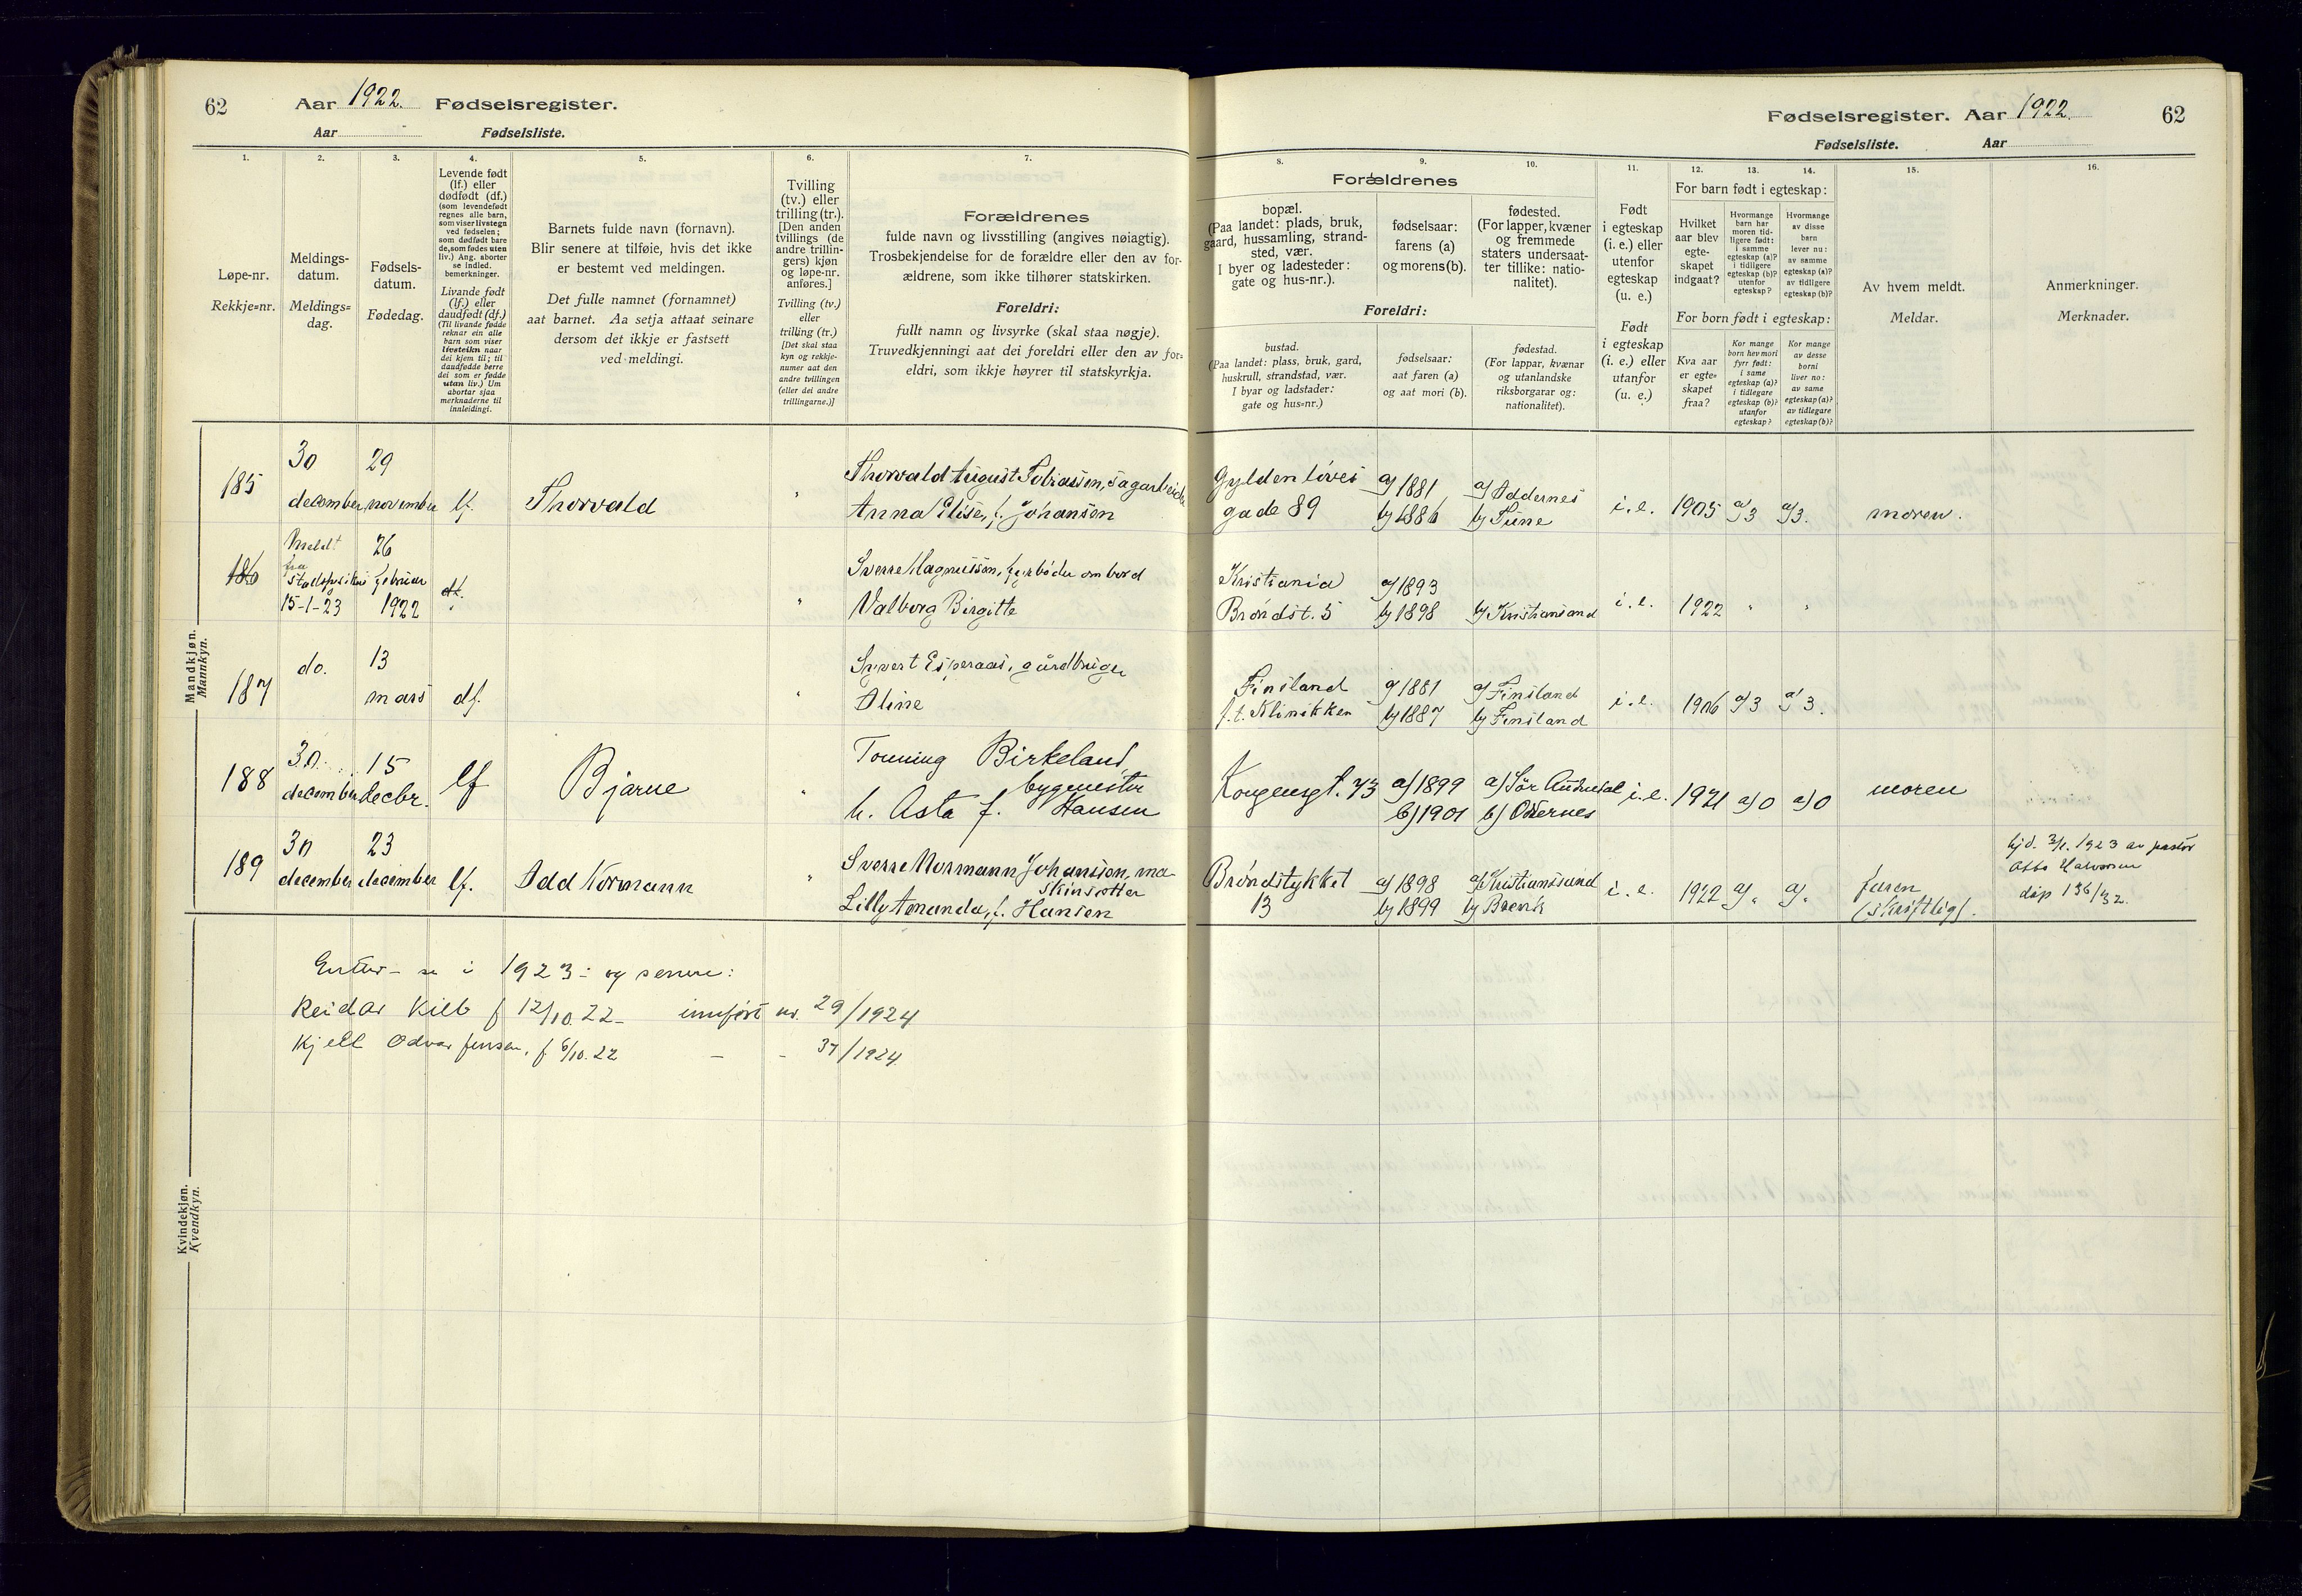 62 Aar 1922. Fødselsregister.
Aar Fødselsliste.
1. 2. 3. 4. 5. 6. 7.
Løpe-nr.
Rekkje=nr.
Meldings-
datum.
Meldings=
dag.
Fødsels-
datum.
Fødedag.
Levende født
(lf.) eller
dødfødt (df.)
(som levendefødt
regnes alle barn,
som viser livstegn
ved fødselen;
som dødfødt bare
de, som fødes uten
liv.) Ang. aborter
se indled.
bemerkninger.
Livande født
(lf.) eller
daudfødt (df.)
(Til livande fødde
reknar ein alle
barn som viser
livsteikn naar
dei kjem til; til
daudfødde berre
dei som er fødde
utan liv.) Um
abortar sjaa
merknaderne til
innleidingi.
Barnets fulde navn (fornavn).
Blir senere at tilføie, hvis det ikke
er bestemt ved meldingen.
Det fulle namnet (fornamnet)
aat barnet. Aa setja attaat seinare
dersom det ikkje er fastsett
ved meldingi.
Tvilling
(tv.) eller
trilling (tr.).
[Den anden
tvillings (de
andre trillin-
gers) kjøn
og løpe-nr.
anføres.]
Tvilling (tv.)
eller
trilling (tr.)
[Det skal staa
kyn og rekkje-
numer aat den
andre tvillingen
(eller dei andre
trillingarne.)]
Forældrenes
fulde navn og livsstilling (angives nøiagtig).
Trosbekjendelse for de forældre eller den av for-
ældrene, som ikke tilhører statskirken.
Foreldri:
fullt namn og livsyrke (skal staa nøgje).
Truvedkjenningi aat dei foreldri eller den av for=
eldri, som ikkje høyrer til statskyrkja.
Mandkjøn.
Mannkyn.
185 30 december 29 november lf. Thorvald "
Thorvald August Tobiassen, sagarbeider
Anna Elise, f. Johansen
186 Meldt
fra
15-1-23
26 februar 1922 df. "
Sverre Magnussen, fyrbøder ombord
Valborg Birgitte
187 do. 13 mars df. "
Syvert Esperaas, gårdbruger
Aline
188 30. december 15 decbr. lf Bjarne "
Tonning Birkeland,
bygmester
h. Asta f. Hansen
189 30 december 23 december lf. Odd Normann "
Sverre Normann Johansen, ma-
skinsetter
Lilly Amanda, f. Hansen
se i 1923 - og senere:
Reidar Kile f 12/10.22 - innført nr. 29/1924
Kjell Odvar Jensen, f 6/10.22 - - 37/1924
Kvindekjøn.
Kvendkyn.
Fødselsregister. Aar 1922. 62
Fødselsliste. Aar
8. 9. 10. 11. 12. 13. 14. 15. 16.
Forældrenes
bopæl.
(Paa landet: plads, bruk,
gaard, hussamling, strand-
sted, vær.
I byer og ladesteder:
gate og hus-nr.).
fødselsaar:
farens (a)
og morens (b).
fødested.
(For lapper, kvæner
og fremmede
staters undersaat-
ter tillike: natio-
nalitet).
Foreldri:
bustad.
(Paa landet: plass, bruk, gard,
huskrull, strandstad, vær.
I byar og ladstader:
gate og hus=nr.)
fødselsaar:
aat faren (a)
og aat mori (b).
fødestad.
(For lappar, kvænar
og utanlandske
riksborgarar og:
nationalitet).
Født
i egteskap
(i. e.) eller
utenfor
egteskap
(u. e.)
Født
i egteskap
(i. e.) eller
utanfor
(u. e.)
For barn født i egteskap:
Hvilket
aar blev
egte-
skapet
indgaat?
Hvormange
barn har
moren tid-
ligere født:
i samme
egteskap (a)?
i tidligere
egteskap (b)?
utenfor
egteskap?
Hvormange
av disse
barn
lever nu:
av samme
egteskap (a)?
av tidligere
egteskap (b)?
For born født i egteskap:
Kva aar
er egte-
skapet
fraa?
Kor mange
born hev mori
fyrr født:
i same
egteskap (a)?
i tidlegare
egteskap (b)?
utanfor
egteskap?
Kor mange
av desse
borni
liver no:
av same
egteskap (a)?
av tidlegare
egteskap (b)?
Av hvem meldt.
Meldar.
Anmerkninger.
Merknader.
Gyldenløves
gade 89
a) 1881
b) 1886
a) Oddernes
b) Tune
i. e. 1905 a) 3 a) 3. moren.
Kristiania
Brøndst. 5
a) 1893
b) 1898
b) Kristiansand
i. e. 1922 " "
Finsland
p.t. Klinikken
a) 1881
b) 1887
a) Finsland
b) Finsland
i. e. 1906 a) 3 a) 3.
Kongensgt. 73
a) 1899
b) 1901
a) Sør Audnedal
b) Oddernes
i. e. 1921 a) 0 a) 0 moren
Brøndstykket
13
a) 1898
b) 1899
a) Kristianssand
b) Brevik
i. e. 1922 a) " a) "
faren
(skriftlig).
hjd. 3/1. 1923 av pastor
Otto Halvorsen
dåp 136/32.